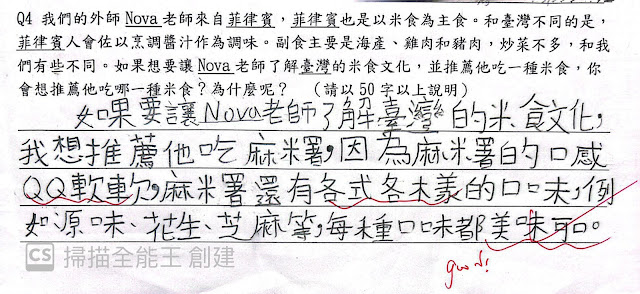 Q4 我們的外師 Nova 老師來自菲律賓，菲律賓也是以米食為主食。和臺灣不同的是，
菲律賓人會佐以烹調醬汁作為調味。副食主要是海產、雞肉和豬肉，炒菜不多，和我
們有些不同。如果想要讓 Nova 老師了解臺灣的米食文化，並推薦他吃一種米食，你
會想推薦他吃哪一種米食？為什麼呢？ （請以 50 字以上說明）
如果要讓Nova老師了解臺灣的米食文化,
我想推薦他吃麻米署,因為麻米署的口感
QQ軟軟,麻米署還有各式各木羕的口味,例
如源味、花生、芝麻等,每種口味都美味可口。
good!
CS 掃描全能王 創建